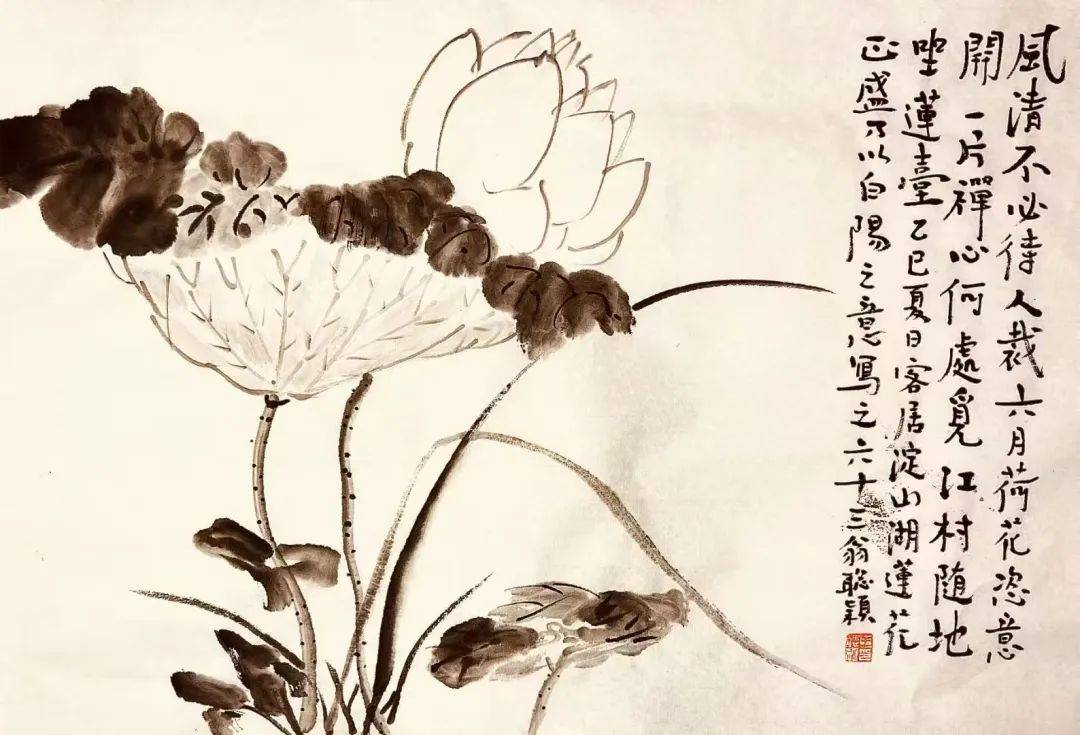 風清不必待人裁六月荷花恣意
開一片禪心何處覓江村随地
坐蓮臺乙巳夏日客居淀山湖蓮花
正盛乃以白陽之意寫之六十三翁聪穎